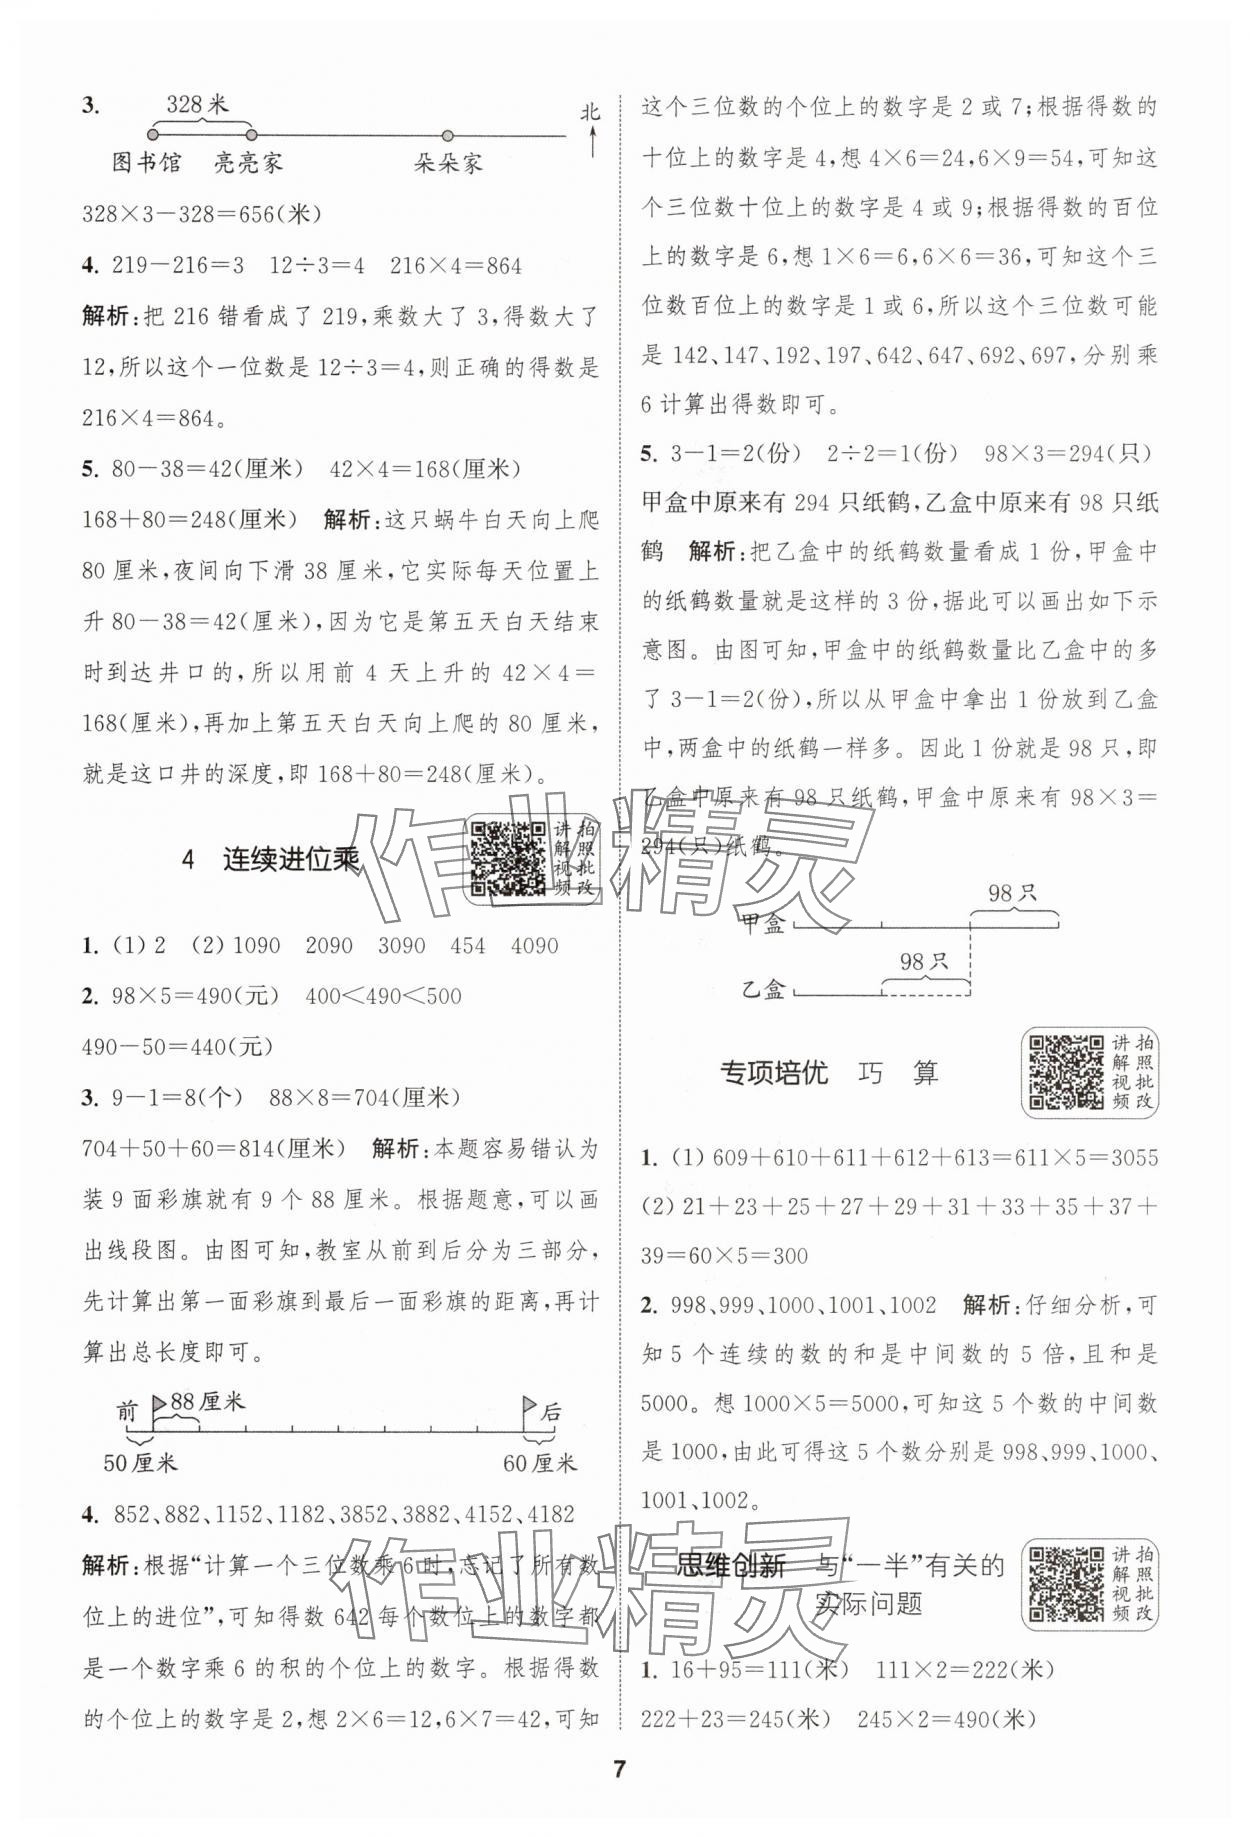 3.
328米
北
图书馆 亮亮家 朵朵家
328×3－328＝656(米)
4. 219－216＝3 12÷3＝4 216×4＝864
解析:把 216 错看成了 219,乘数大了 3,得数大了
12,所以这个一位数是 12÷3＝4,则正确的得数是
216×4＝864。
5. 80－38＝42(厘米) 42×4＝168(厘米)
168＋80＝248(厘米) 解析:这只蜗牛白天向上爬
80 厘米,夜间向下滑 38 厘米,它实际每天位置上
升 80－38＝42(厘米),因为它是第五天白天结束
时到达井口的,所以用前 4 天上升的 42×4＝
168(厘米),再加上第五天白天向上爬的 80 厘米,
就是这口井的深度,即 168＋80＝248(厘米)。
4 连续进位乘
讲解视频
拍照批改
1. (1) 2 (2) 1090 2090 3090 454 4090
2. 98×5＝490(元) 400＜490＜500
490－50＝440(元)
3. 9－1＝8(个) 88×8＝704(厘米)
704＋50＋60＝814(厘米) 解析:本题容易错认为
装 9 面彩旗就有 9 个 88 厘米。根据题意,可以画
出线段图。由图可知,教室从前到后分为三部分,
先计算出第一面彩旗到最后一面彩旗的距离,再计
算出总长度即可。
前 88厘米 后
50厘米 60厘米
4. 852、882、1152、1182、3852、3882、4152、4182
解析:根据“计算一个三位数乘 6 时,忘记了所有数
位上的进位”,可知得数 642 每个数位上的数字都
是一个数字乘 6 的积的个位上的数字。根据得数
的个位上的数字是 2,想 2×6＝12,6×7＝42,可知
这个三位数的个位上的数字是 2 或 7;根据得数的
十位上的数字是 4,想 4×6＝24,6×9＝54,可知这
个三位数十位上的数字是 4 或 9;根据得数的百位
上的数字是 6,想 1×6＝6,6×6＝36,可知这个三
位数百位上的数字是 1 或 6,所以这个三位数可能
是 142、147、192、197、642、647、692、697,分别乘
6 计算出得数即可。
5. 3－1＝2(份) 2÷2＝1(份) 98×3＝294(只)
甲盒中原来有 294 只纸鹤,乙盒中原来有 98 只纸
鹤 解析:把乙盒中的纸鹤数量看成 1 份,甲盒中
的纸鹤数量就是这样的 3 份,据此可以画出如下示
意图。由图可知,甲盒中的纸鹤数量比乙盒中的多
了 3－1＝2(份),所以从甲盒中拿出 1 份放到乙盒
中,两盒中的纸鹤一样多。因此 1 份就是 98 只,即
乙盒中原来有 98 只纸鹤,甲盒中原来有 98×3＝
294(只)纸鹤。
98只
甲盒
98只
乙盒
专项培优 巧 算
讲解视频
拍照批改
1. (1) 609＋610＋611＋612＋613＝611×5＝3055
(2) 21＋23＋25＋27＋29＋31＋33＋35＋37＋
39＝60×5＝300
2. 998、999、1000、1001、1002 解析:仔细分析,可
知 5 个连续的数的和是中间数的 5 倍,且和是
5000。想 1000×5＝5000,可知这 5 个数的中间数
是 1000,由此可得这 5 个数分别是 998、999、1000、
1001、1002。
思维创新 与“一半”有关的
实际问题
讲解视频
拍照批改
1. 16＋95＝111(米) 111×2＝222(米)
222＋23＝245(米) 245×2＝490(米)
7
作业精灵
作业精灵